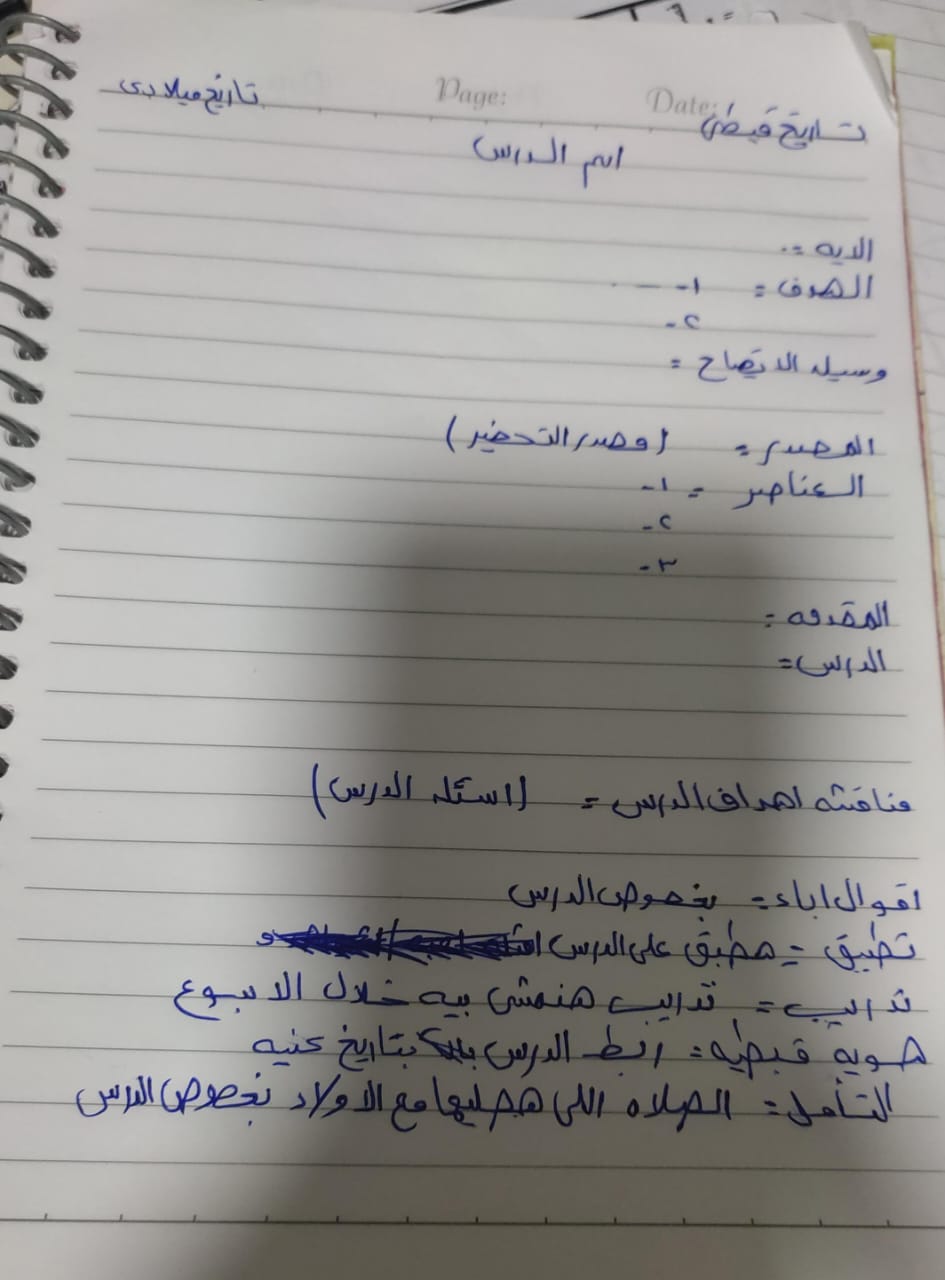 Page: Date:
تاريخ قبطى تاريخ ميلادى
اسم الدرس
الايه =
الهدف = ١-
٢-
وسيله الايضاح =
المصدر = (مصدر التحضير)
العناصر = ١-
٢-
٣-
المقدمه =
الدرس =
مناقشه اهداف الدرس = (اسئله الدرس)
اقوال اباء = بخصوص الدرس
تطبيق = هطبق على الدرس
تدريب = تدريب هنمشى بيه خلال الاسبوع
هويه قبطيه = ربط الدرس بتاريخ كنيسه
التأمل = الصلاه اللى هصليها مع الاولاد بخصوص الدرس